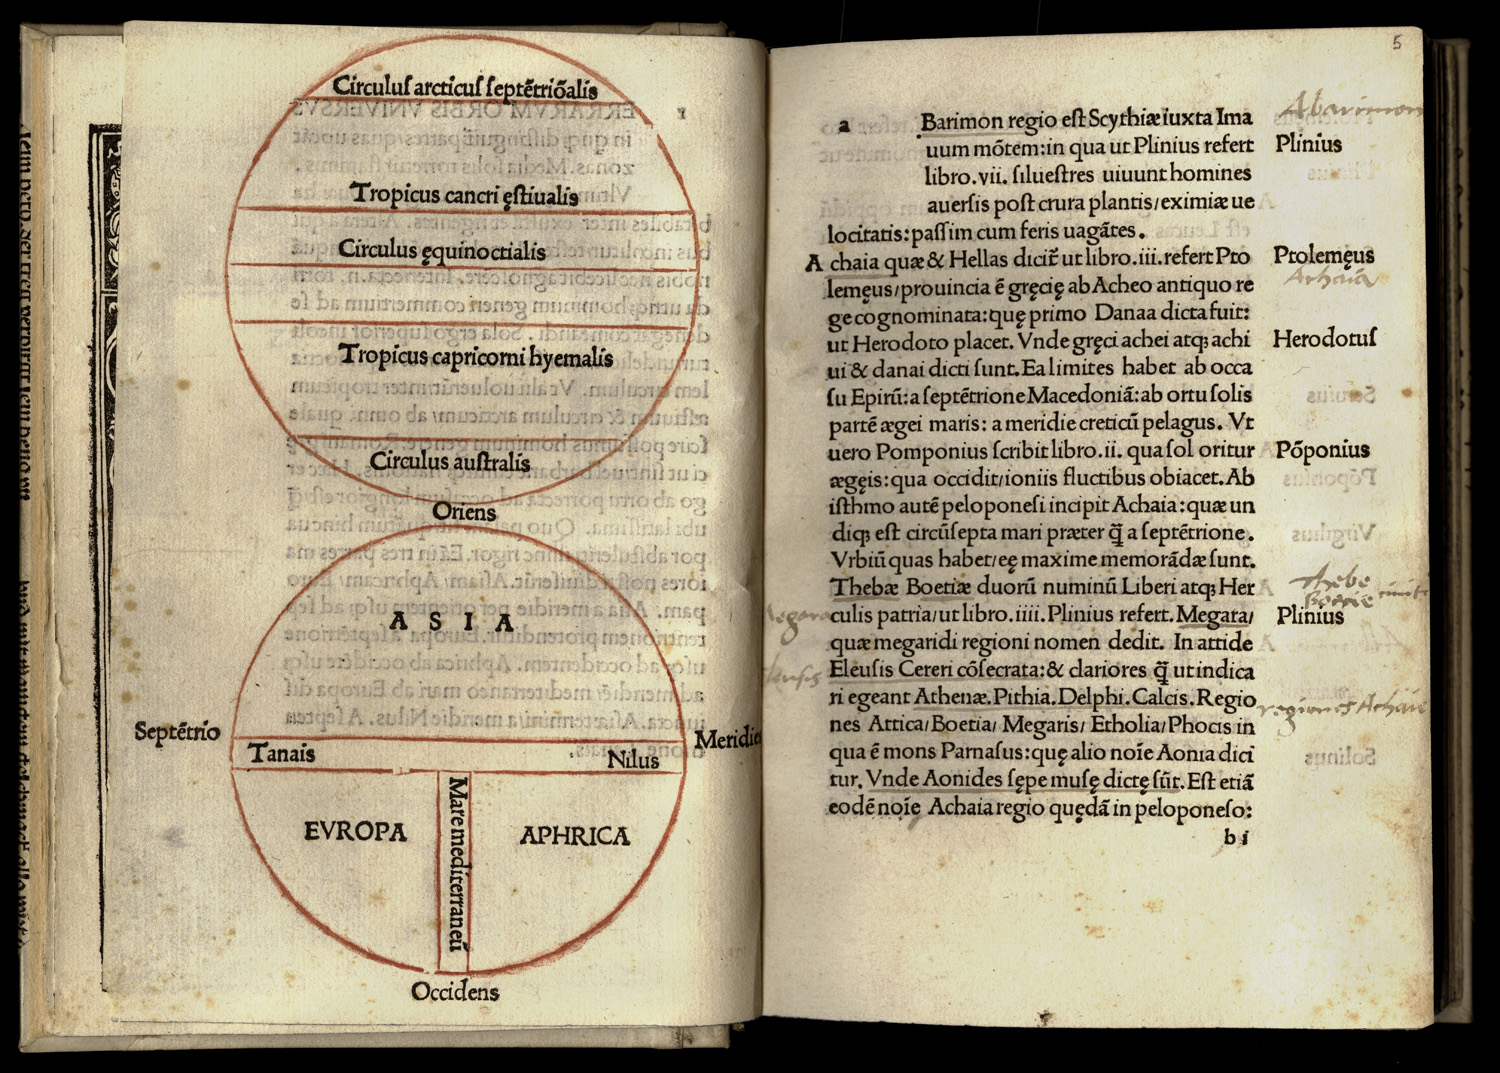 Circuluſ arcticuſ ſeptẽtriõalis
Tropicus cancri ęſtiualis
Circulus ęquinoctialis
Tropicus capricorni hyemalis
Circulus auſtralis
Oriens
A S I A
Septẽtrio
Meridies
Tanais
Nilus
Mare mediterraneũ
EVROPA
APHRICA
Occidens
5
a Barimon regio eſt Scythiæ iuxta Ima
uum mõtem: in qua ut Plinius refert
libro.vii. ſilueſtres uiuunt homines
auerſis poſt crura plantis/eximiæ ue
locitatis: paſſim cum feris uagãtes.
A chaia quæ & Hellas dicit̃ ut libro.iii.refert Pto
lemęus/prouincia ẽ gręcię ab Acheo antiquo re
ge cognominata: quę primo Danaa dicta fuit:
ut Herodoto placet. Vnde gręci achei atqꝫ achi
ui & danai dicti ſunt. Ea limites habet ab occa
ſu Epirũ: a ſeptẽtrione Macedoniã: ab ortu ſolis
partẽ ægei maris: a meridie creticũ pelagus. Vt
uero Pomponius ſcribit libro.ii. qua ſol oritur
ægęis: qua occidit/ioniis fluctibus obiacet. Ab
iſthmo autẽ peloponeſi incipit Achaia: quæ un
diqꝫ eſt circũſepta mari præter q̃ a ſeptẽtrione.
Vrbiũ quas habet/eę maxime memorãdæ ſunt.
Thebæ Boetiæ duorũ numinũ Liberi atqꝫ Her
culis patria/ut libro.iiii. Plinius refert. Megara/
quæ megaridi regioni nomen dedit. In attide
Eleuſis Cereri cõſecrata: & clariores q̃ ut indica
ri egeant Athenæ. Pithia. Delphi. Calcis. Regio
nes Attica/Boetia/ Megaris/ Etholia/Phocis in
qua ẽ mons Parnaſus: quę alio noĩe Aonia dici
tur. Vnde Aonides ſępe muſę dictę ſũt. Eſt etiã
eodẽ noĩe Achaia regio quędã in peloponeſo:
b i
Abarimon
Plinius
Ptolemęus
Achaia
Herodotuſ
Põponius
Thebe
Boetie
Plinius
regiones Achaie